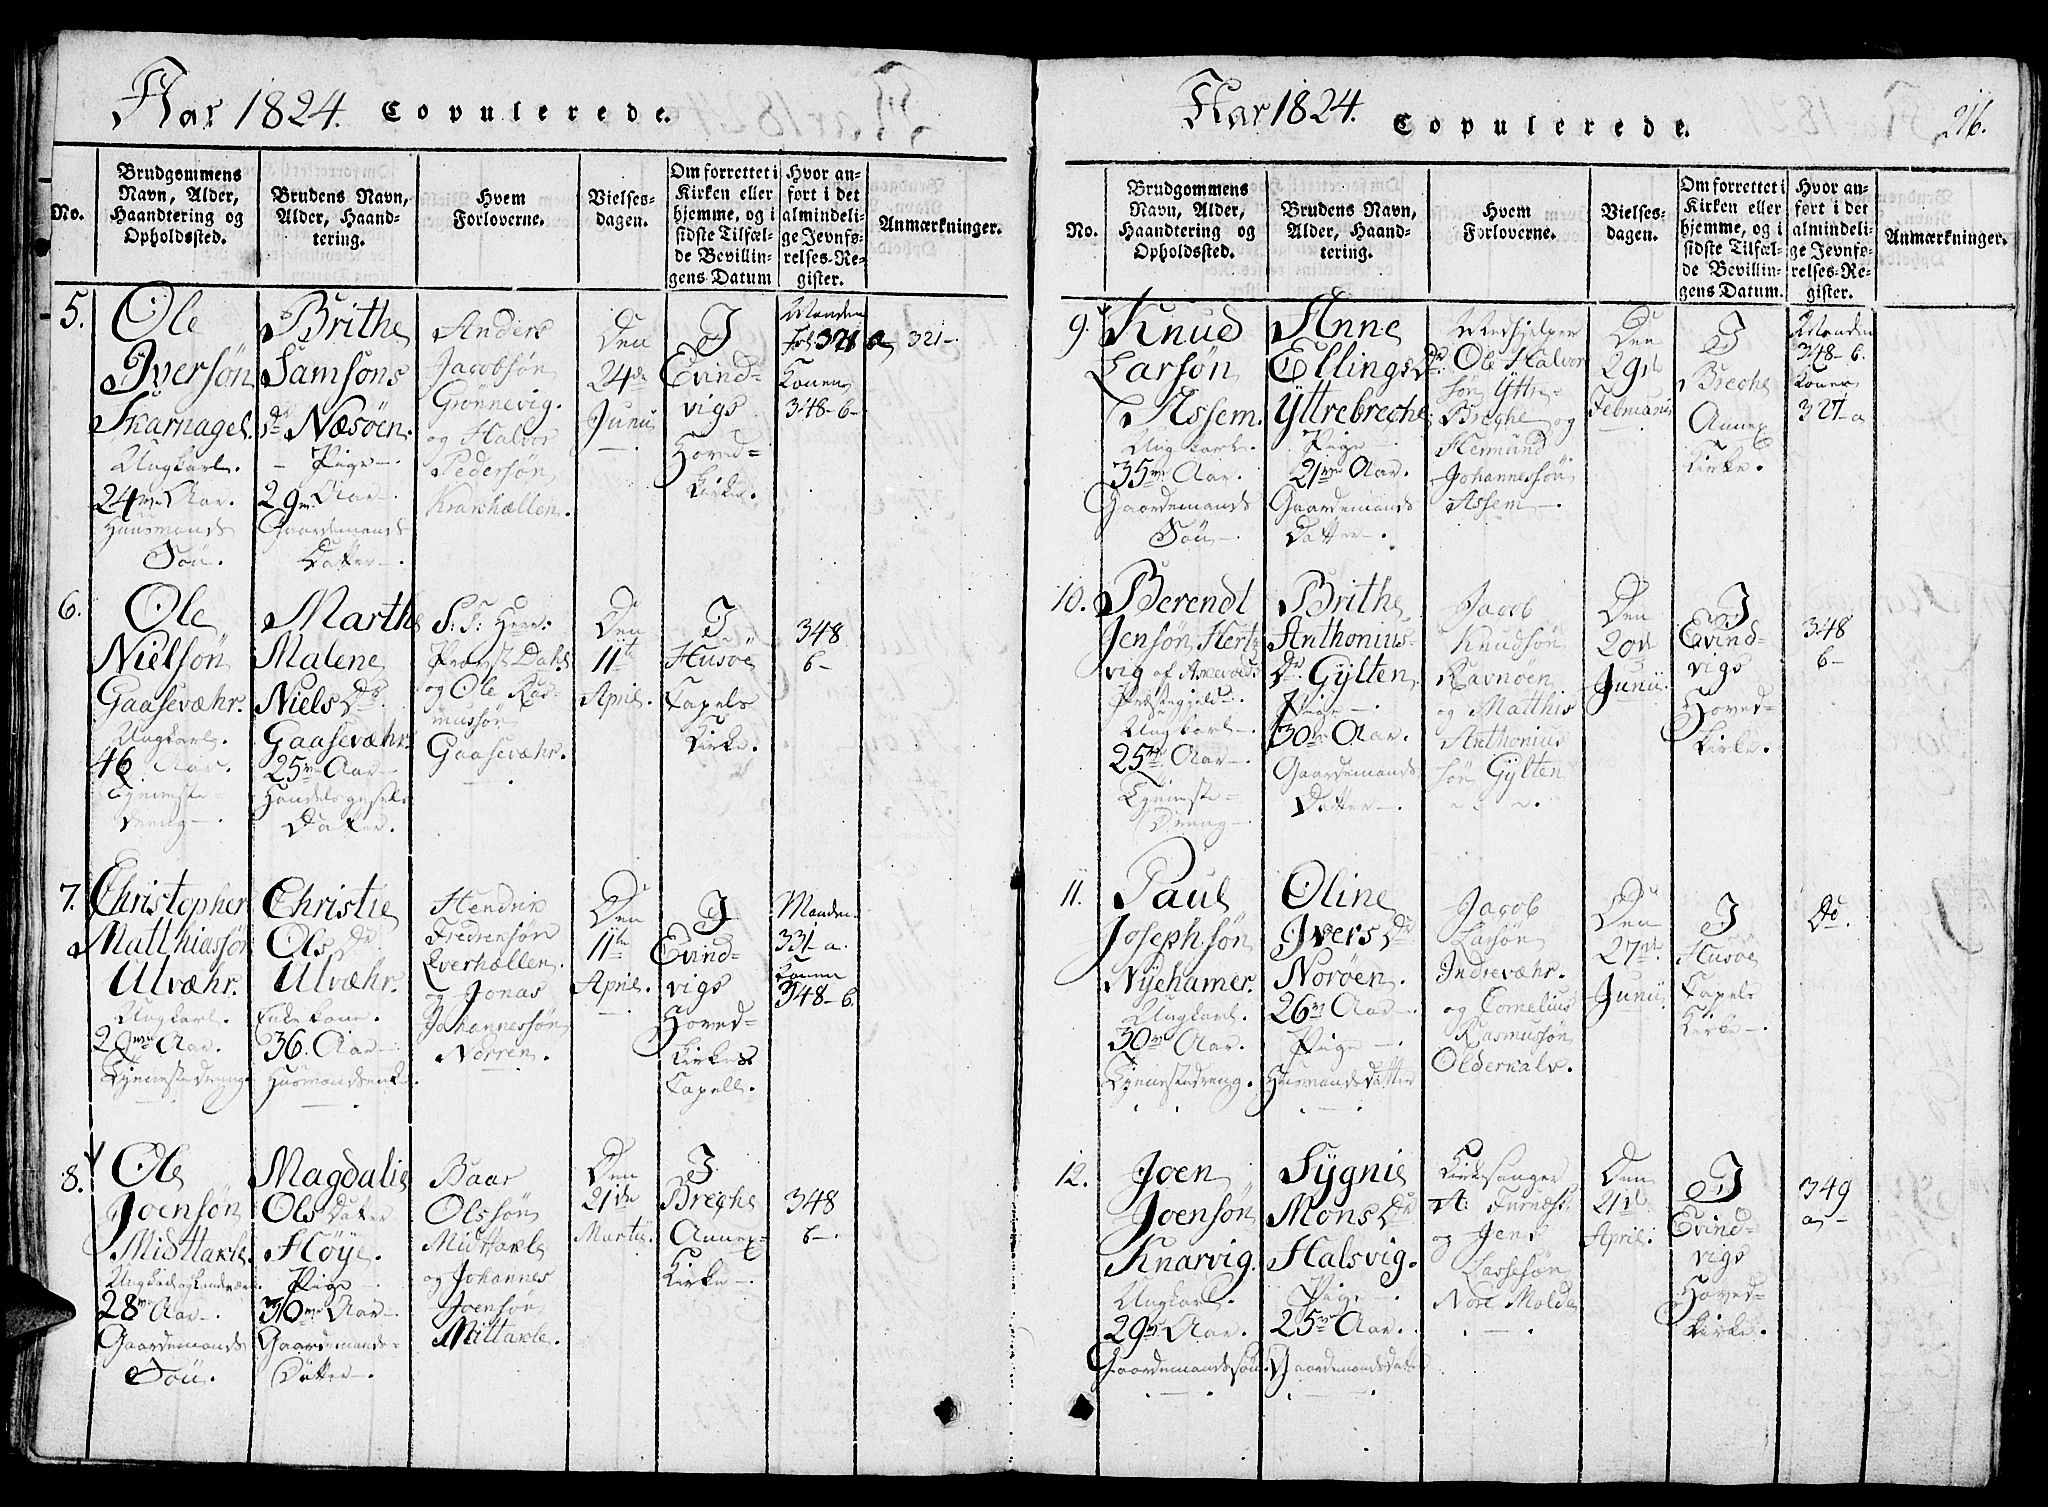 Aar 1824. Copulerede.
No.
Brudgommens
Navn, Alder,
Haandtering og
Opholdssted.
Brudens Navn,
Alder, Haand-
tering.
Hvem
Forloverne.
Vielses-
dagen.
Om forrettet i
Kirken eller
hjemme, og i
sidste Tilfæl-
de Bevillin-
gens Datum
Hvor an-
ført i det
almindeli-
ge Jevnfø-
relses-Re-
gister.
Anmærkninger.
5.
Ole
Iversøn
Skarnagel.
Ungkarl.
24 Aar.
Huusmands
Søn.
Brithe
Samsons
Dr Næsøen.
Pige
29 Aar
Gaardemands
Datter.
Anders
Jacobsøn
Grønnevig.
og Halvor
Pedersøn
Kraxhællen.
Den
24de
Junii
I
Evind-
vigs
Hoved-
kirke.
Manden
Fol 321 a
Konen
348-b
321
6.
Ole
Nielsøn
Gaasevæhr.
Ungkarl.
46 Aar.
Tjeneste-
dreng.
Marthe
Malene
Niels Dr
Gaasevæhr.
25 Aar
Datter.
S. T. Herr
Provst Dahl
og Ole Ras-
mussøn
Gaasevæhr.
Den
11te
April.
I
Husøe
Capels
Kirke.
348
b
7.
Christopher
Matthiassøn
Ulvæhr.
Ungkarl.
Aar.
Tjenestedreng.
Christie
Ols Dr
Ulvæhr.
Enkekone.
36. Aar
Husmandsenke
Hendrik
Fredrensøn
Everhællen.
og Jonas
Johannessøn
Norren.
Den
11te
April.
I
Evind-
vigs
Hoved-
Kirkes
Capell.
Manden
331-a.
Konen
348-b.
8.
Ole
Joensøn
Midttakle.
28 Aar
Gaardemands
Søn.
Magdalie
Ols Datter
Høye.
Pige
30 Aar
Gaardemands-
Datter.
Baar
Olssøn
Midttakle
og Johannes
Joensøn
Mittakle.
Den
21de
Martii.
I
Breche
Annex-
Kirke.
348
b
Aar 1824. Copulerede. 216.
No.
Brudgommens
Navn, Alder,
Haandtering og
Opholdssted.
Brudens Navn,
Alder, Haand-
tering.
Hvem
Forloverne.
Vielses-
dagen.
Om forrettet i
Kirken eller
hjemme, og i
sidste Tilfæl-
de Bevillin-
gens Datum.
Hvor an-
ført i det
almindeli-
ge Jevnfø-
relses-Re-
gister.
Anmærkninger.
9.
Knud
Larsøn
Assem.
Ungkarl.
35 Aar.
Gaardemands
Søn.
Anne
Ellings Dr.
Yttrebreche.
Pige
21 Aar.
Gaardemands
Datter.
Medhjelper
Ole Halvor
søn Yttre-
Breche og
Hermund
Johannessøn
Assem.
Den
29de
Februarii
I
Breche
Annex
Kirke.
Manden
348-b.
Konen
327-a
10.
Berendt
Jensøn Hertz
vig af Askevolds
Præstegjeld.
Ungkarl.
25 Aar.
Tjeneste-
Dreng.
Brithe
Anthonius-
Dr. Gylten.
Pige.
30 Aar.
Gaardemands
Datter.
Jacob
Knudsøn
Ravnøen
og Matthis
Anthonius
søn Gylten
Den
20de
Junii.
I
Evind-
vigs
Hoved-
Kirke.
348
b
11.
Paul
Josephsøn
Nyehamer.
Ungkarl.
30 Aar.
Tjenestedreng.
Oline
Ivers Dr
Norøen.
26 Aar.
Pige.
Husmandsdatter
Jacob
Larsøn
Indrevæhr.
og Cornelius
Rasmussøn
Oldervalv.
Den
27de
Junii
I
Husøe
Capels
Kirke.
Do.
12.
Joen
Joensøn
Knarvig.
Ungkarl.
29 Aar.
Gaardemandssøn.
Sygnie
Mons Dr
Halsvig.
Pige.
25 Aar.
Gaardemandsdatter
Kirkesanger
A: Furnæss.
og Jens
Lassesøn
Nore Molde
Den
21de
April.
I
Evind-
vigs
Hoved-
kirke.
349
a